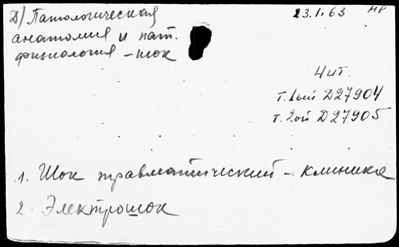 Д/ Патологическая
23.I.63 МР
анатомия и пат.
физиология – шок
4 ит.
т. 1ый Д27904
т. 2ой Д27905
1. Шок травматический – клиника
2. Электрошок